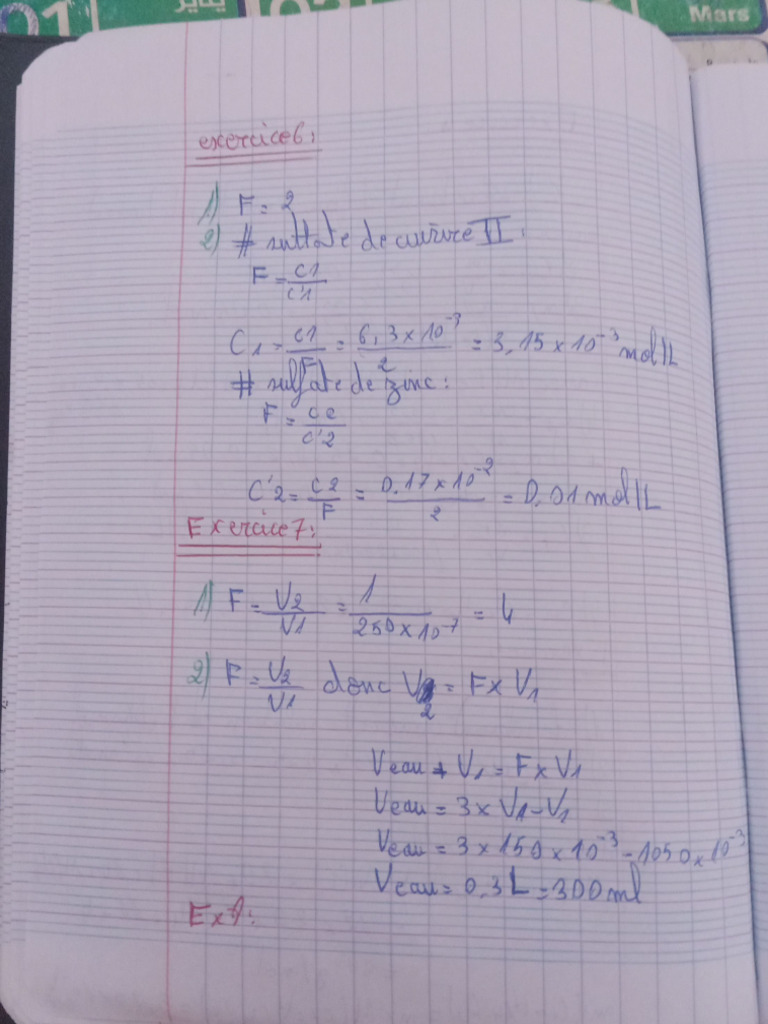 01
يناير
03
Mars
exercice 6:
1) F = 2
2) # sulfate de cuivre II:
F = C1/C'1
C1 = C1/F = 6,3 x 10^-3/2 = 3,15 x 10^-3 mol/L
# sulfate de zinc:
F = C2/C'2
C'2 = C2/F = 0.17 x 10^-2/2 = 0,01 mol/L
Exercice 7:
1) F = V2/V1 = 1/250 x 10^-7 = 4
2) F = V2/V1 donc V2 = F x V1
Veau + V1 = F x V1
Veau = 3 x V1 - V1
Veau = 3 x 150 x 10^-3 - 1050 x 10^-3
Veau = 0,3 L = 300 ml